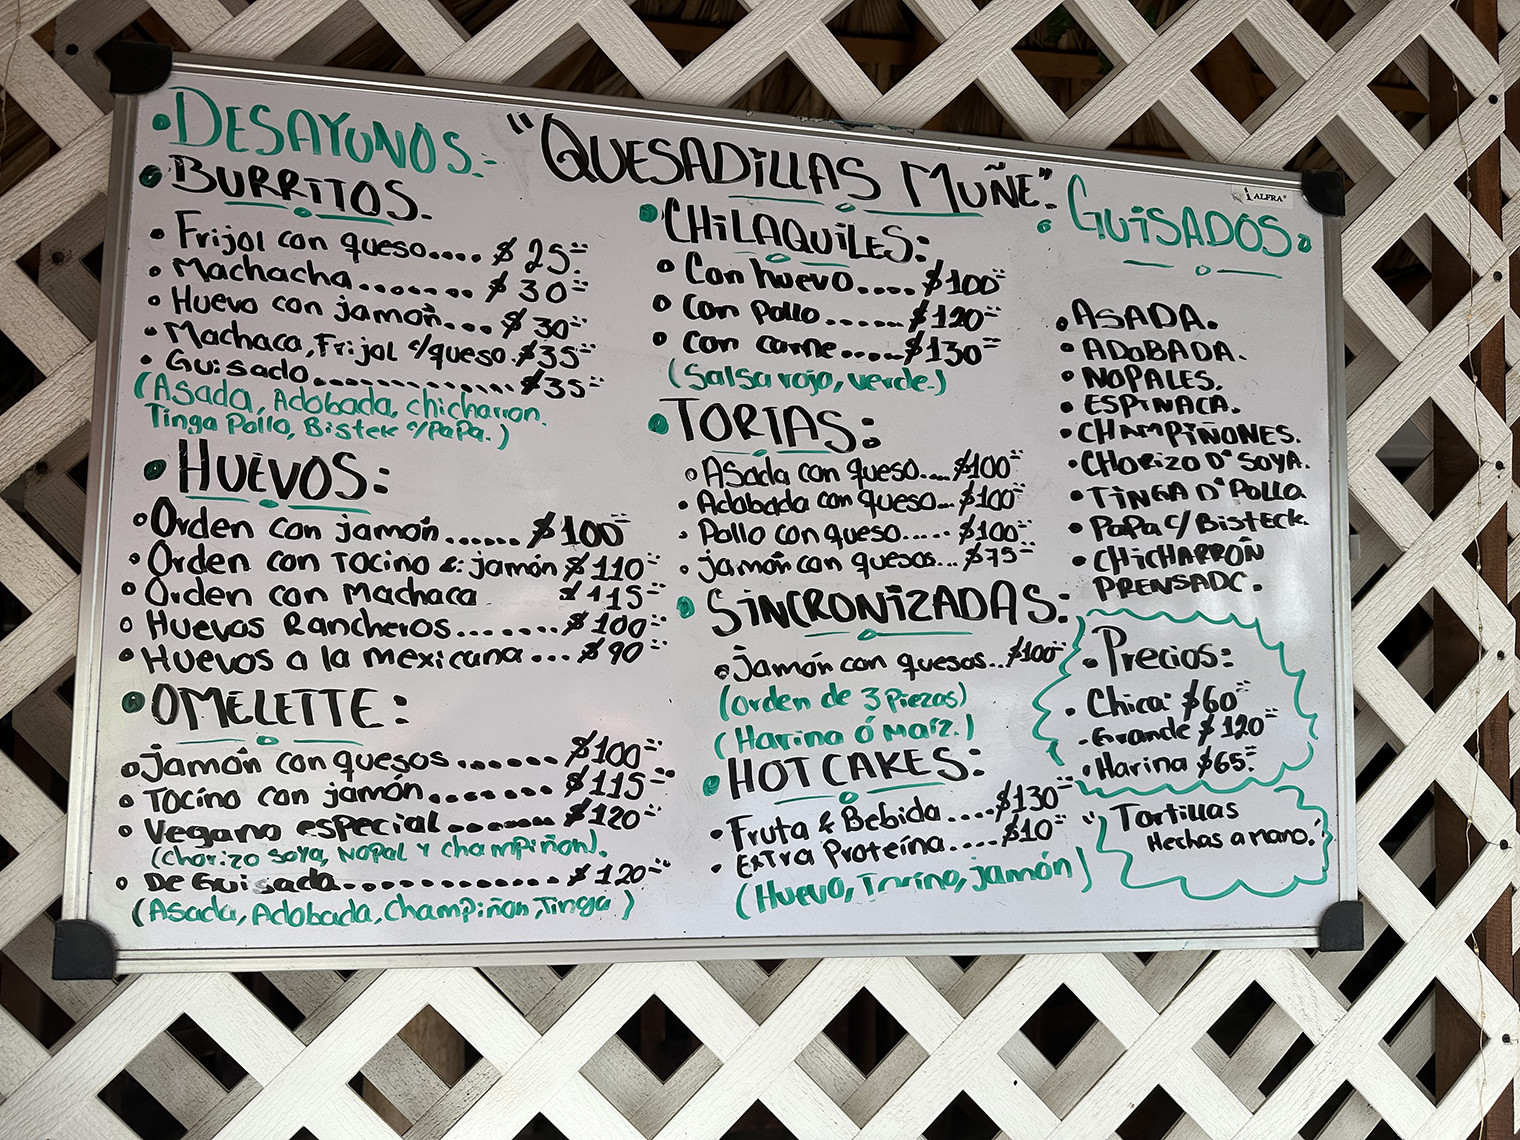 • DESAYUNOS:
"QUESADILLAS MUÑE".
ALFRA®
• BURRITOS.
• Frijol con queso.... $25=
• Machacha....... $30=
• Huevo con jamón... $30=
• Machaca, Frijol c/queso. $35=
• Guisado............. $35=
(Asada, Adobada, chicharron.
Tinga Pollo, Bistek c/PaPa.)
• HUEVOS:
• Orden con jamón...... $100=
• Orden con Tocino & jamón $110=
• Orden con Machaca $115=
• Huevos Rancheros....... $100=
• Huevos a la mexicana... $90=
• OMELETTE:
• Jamón con quesos...... $100=
• Tocino con jamón....... $115=
• Vegano especial....... $120=
(Chorizo Soya, Nopal y Champiñon).
• De Guisada............. $120=
(Asada, Adobada, Champiñon, Tinga)
• CHILAQUILES:
• Con huevo.... $100=
• Con Pollo...... $120=
• Con carne..... $130=
(Salsa roja, verde.)
• TORTAS:
• Asada con queso.... $100=
• Adobada con queso... $100=
• Pollo con queso..... $100=
• jamón con quesos... $75=
• SINCRONIZADAS:
• Jamón con quesos.. $100=
(Orden de 3 Piezas)
(Harina ó Maíz.)
• HOT CAKES:
• Fruta & Bebida.... $130=
• Extra Proteína.... $10=
(Huevo, Tocino, jamón)
• GUISADOS:
• ASADA.
• ADOBADA.
• NOPALES.
• ESPINACA.
• CHAMPIÑONES.
• CHORIZO D' SOYA.
• TINGA D' POLLO
• PAPA C/ BISTECK.
• CHICHARRÓN
PRENSADO.
• Precios:
• Chica: $60=
• Grande $120=
• Harina $65=
"Tortillas
Hechas a mano."